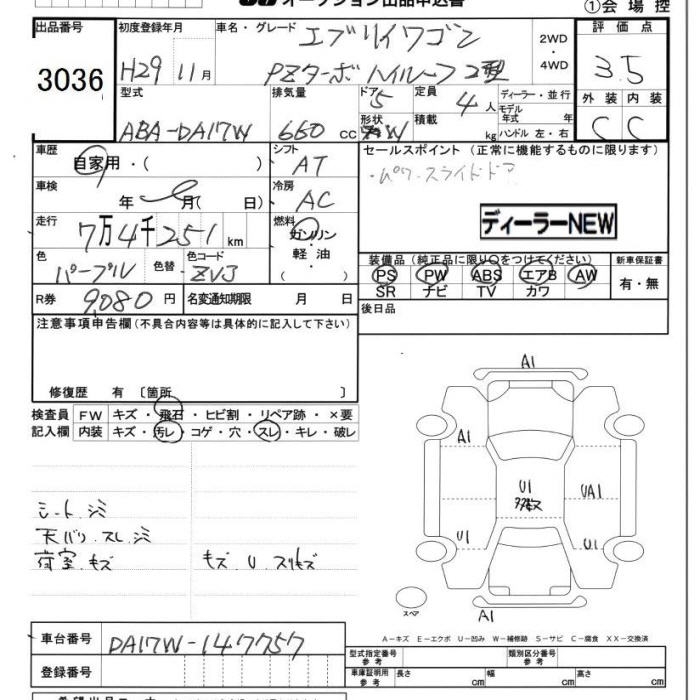 オークション出品申込書
①会場控
出品番号
3036
初度登録年月
H29 11月
車名・グレード
エブリイワゴン
PZターボ ハイルーフ 2型
2WD
・
4WD
評価点
3.5
外装 内装
C C
型式
ABA-DA17W
排気量
660 cc
ドア 5
形状 W
定員 4人
積載 kg
ディーラー・並行
モデル年式 年
ハンドル 左・右
車歴
自家用・( )
シフト
AT
車検
年 月( 日)
冷房
AC
走行
7万4千251km
燃料
ガソリン
・軽油
・( )
色
パープル
色替
色コード
ZVJ
R券
9,080円
名変通知期限 月 日
セールスポイント (正常に機能するものに限ります)
・パワースライドドア
ディーラーNEW
装備品 (純正品に限り○をつけてください)
PS PW ABS エアB AW
SR ナビ TV カワ
新車保証書
有・無
後日品
注意事項申告欄 (不具合内容等は具体的に記入して下さい)
修復歴 有 〔箇所 〕
検査員
記入欄
FW キズ・飛石・ヒビ割・リペア跡・×要
内装 キズ・汚レ・コゲ・穴・スレ・キレ・破レ
シート.シミ
天バリ.スレ.シミ
荷室.キズ
キズ.U.スリキズ
A1
A1
U1
UA1
U1
U1
A1
スペア
A-キズ E-エクボ U-凹み W-補修跡 S-サビ C-腐食 XX-交換済
車台番号
DA17W-147757
登録番号
型式指定番号
参考
類別区分番号
参考
車庫証明用
参考
長さ cm 幅 cm 高さ cm